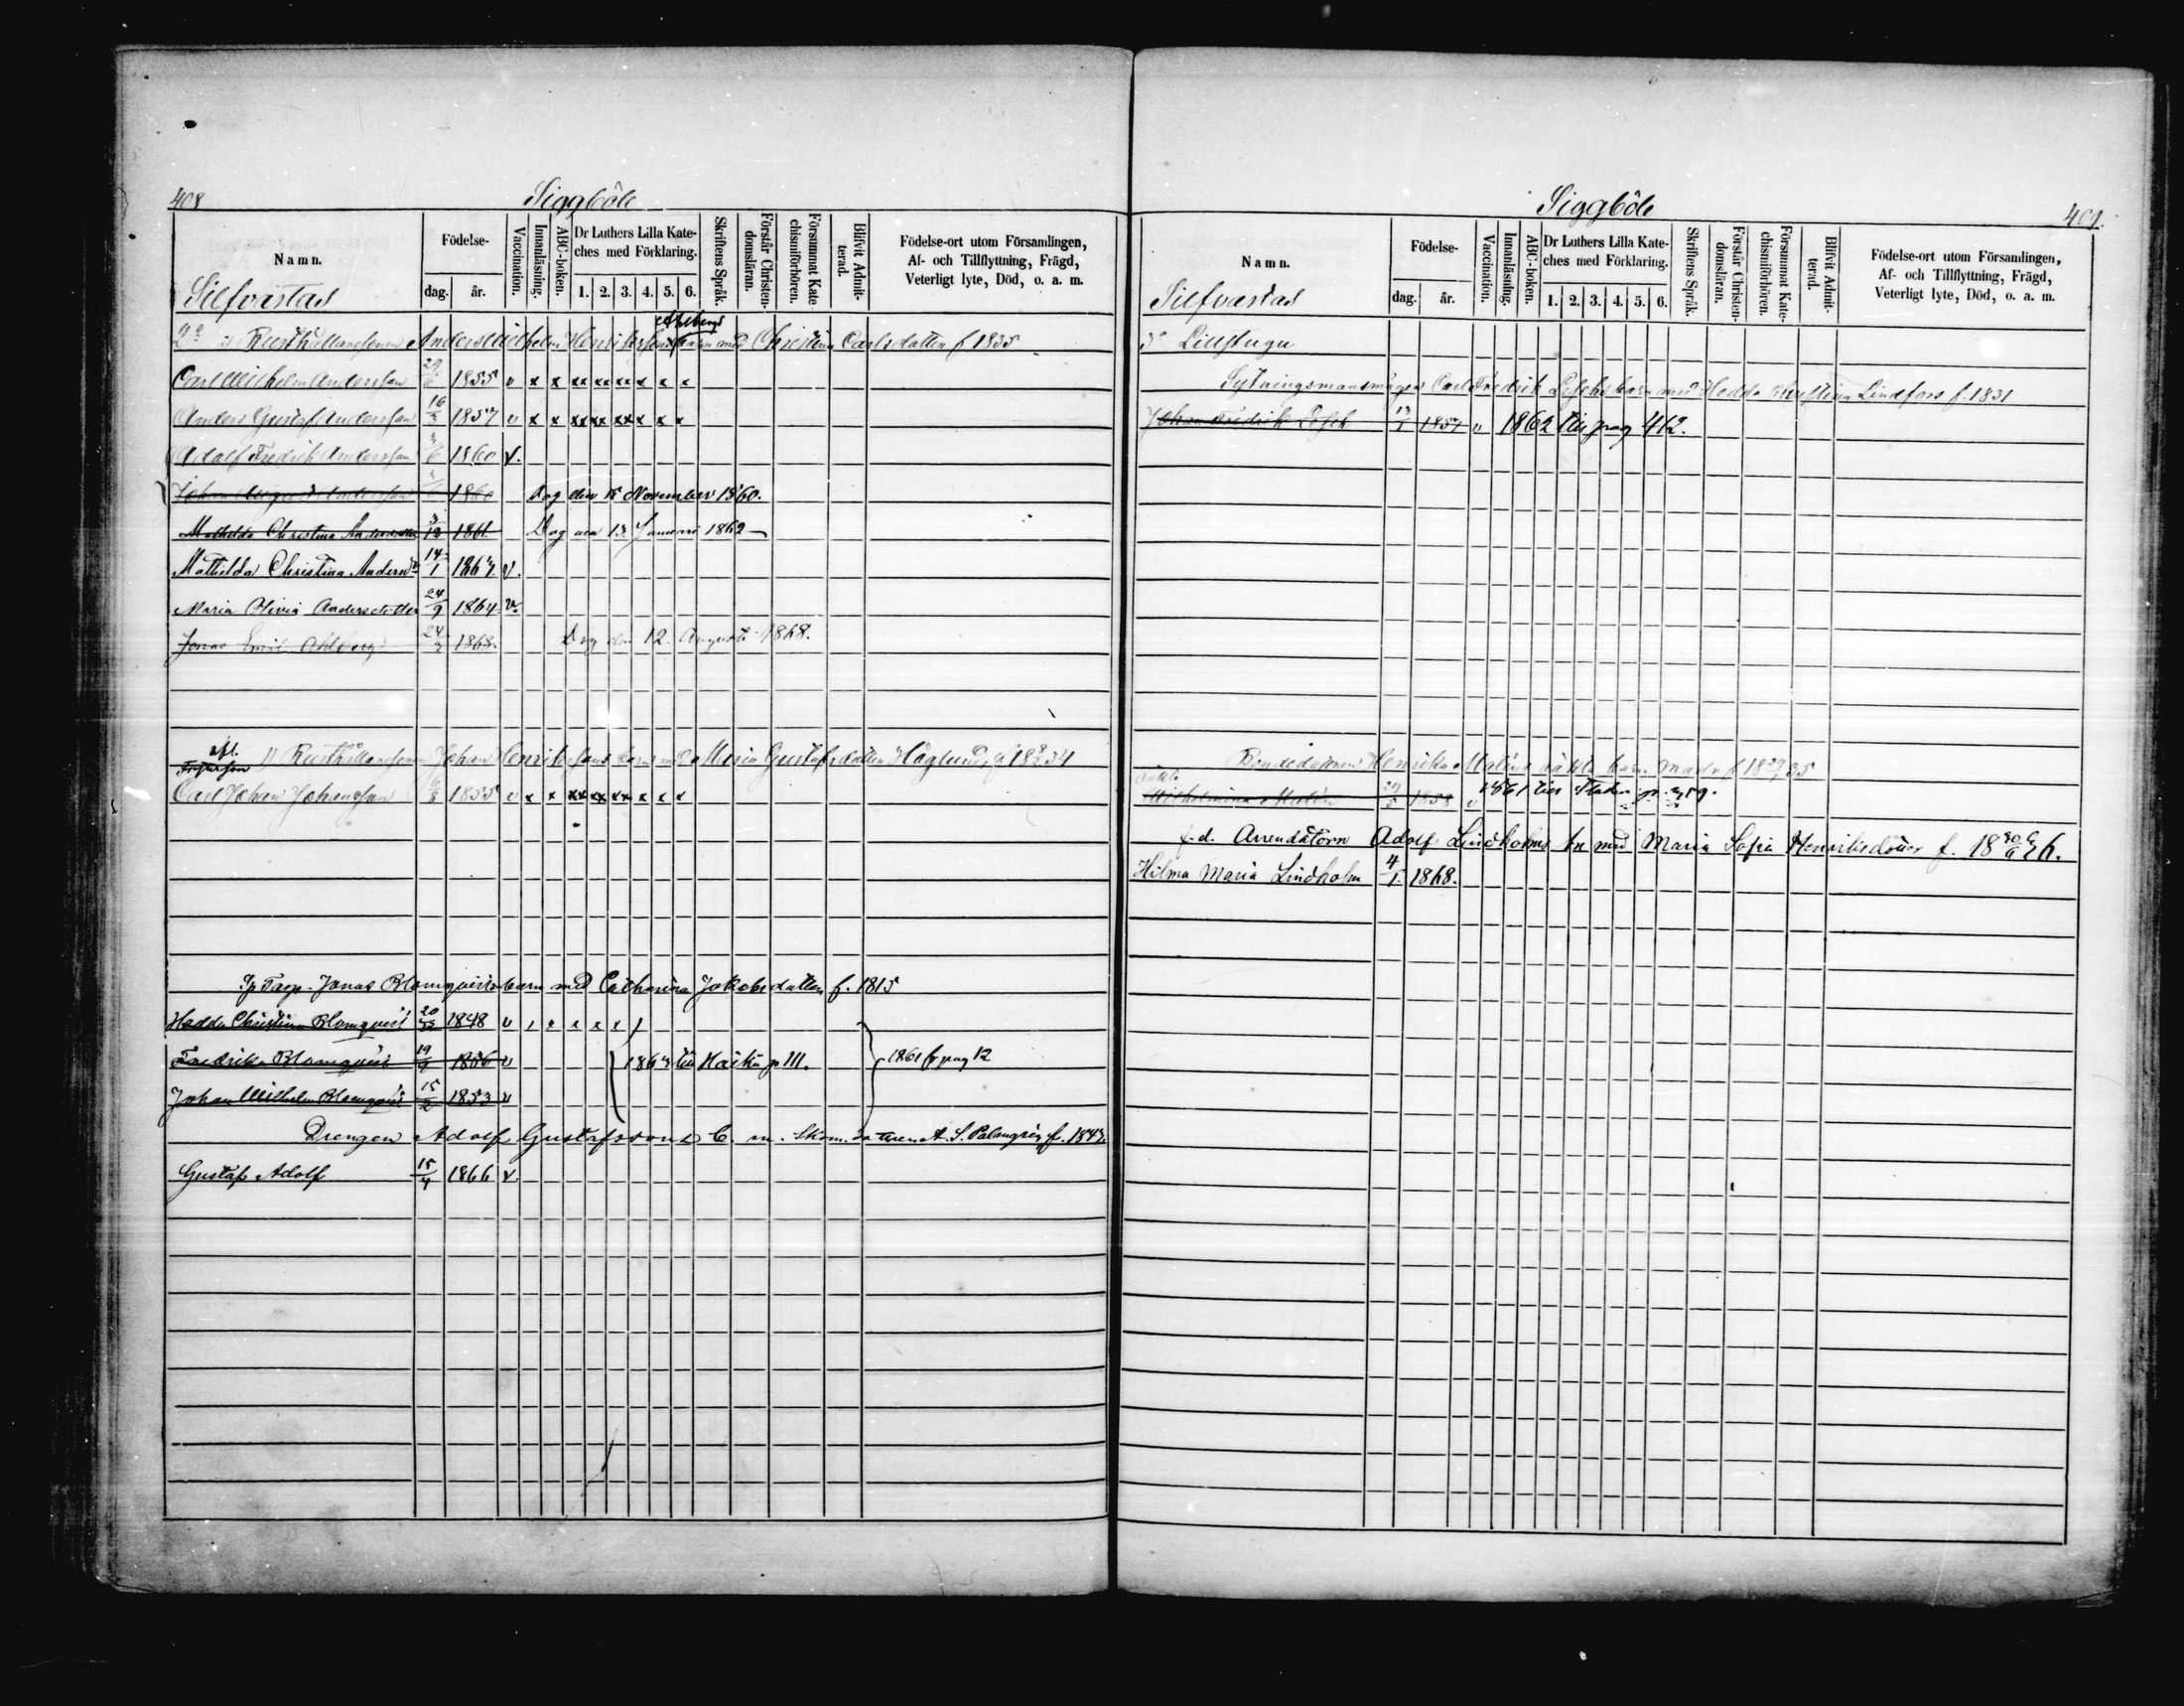 408
Siggböle
Namn.
Födelse-
dag.
år.
Vaccination.
Innanläsning.
ABC-boken.
Dr Luthers Lilla Kate-
ches med Förklaring.
1. 2. 3. 4. 5. 6.
Skriftens Språk.
Förstår Christen-
domsläran.
Försummat Kate-
chismiförhören.
Blifvit Admit-
terad.
Födelse-ort utom Församlingen,
Af- och Tillflyttning, Frägd,
Veterligt lyte, Död, o. a. m.
Silfvastas
Ahlbergs
2o 2) Rusthållaresonen Anders Wilhelm Henrikssons barn med Christina Carlsdotter f 1835
Carl Wilhelm Andersson 29/6 1855 v x x xx xx xx x x x
Anders Gustaf Andersson 16/3 1857 v x x xx xx xx x x x
Adolf Fredrik Andersson 3/6 1860 v.
Johan August Andersson 3/6 1860 Dog den 15 November 1860.
Mathilda Christina Andersdotter 3/12 1861. Dog den 13 Januari 1862
Mathilda Christina Andersd:r 14/1 1863. v.
Maria Olivia Andersdotter 24/9 1864. v.
Jonas Emil Ahlberg 24/3 1868. Dog den 12. Augusti 1868.
afl.
1) Rusthållaresonen Johan Henrikssons barn med Maria Gustafsdotter Häglund f 1834
Carl Johan Johansson 6/3 1855 v x x xx xx xx x x x
Torp. Jonas Blomqvists barn med Catharina Jakobsdotter f. 1815
Hedda Christina Blomqvist 20/12 1848 v
Fredrika Blomqvist 19/9 1856 v 1863 till Haiku p 111. 1861 fr pag 12
Johan Wilhelm Blomqvist 15/2 1853 v
Drengen Adolf Gustafssons b. m. A. S. Palmgren f. 1843.
Gustaf Adolf 15/4 1866 v.
Siggböle
409.
Namn.
Födelse-
dag.
år.
Vaccination.
Innanläsning.
ABC-boken.
Dr Luthers Lilla Kate-
ches med Förklaring.
1. 2. 3. 4. 5. 6.
Skriftens Språk.
Förstår Christen-
domsläran.
Försummat Kate-
chismiförhören.
Blifvit Admit-
terad.
Födelse-ort utom Församlingen,
Af- och Tillflyttning, Frägd,
Veterligt lyte, Död, o. a. m.
Silfvastas
3o Lillstugu
Sytningsmansmågen Carl Fredrik Leschs barn med Hedda Christina Lindfors f. 1831
Johan Fredrik Lesch 1857 v 1862 till pag 412.
Bondedottren Henrika Malins oäkta barn. Modr f 1835
oäkta
Wilhelmina Malin 1858 v 1861 till Staden p. 259.
f.d. Arrendatorn Adolf Lindholms bn med Maria Sofia Henriksdotter f. 18 30/6 26.
Hilma Maria Lindholm 4/1. 1868.